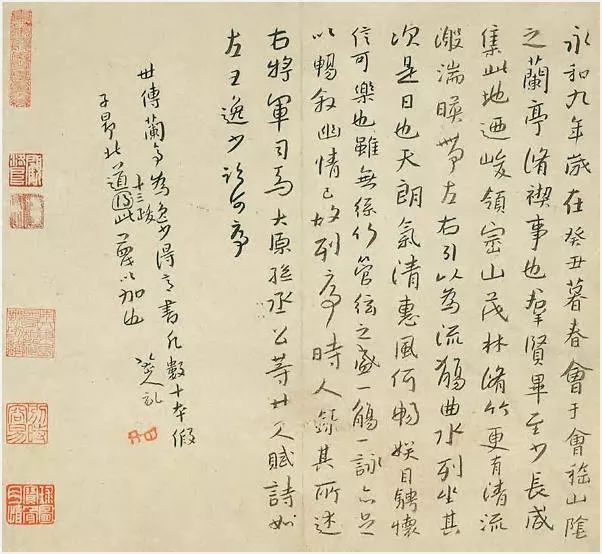 永和九年歲在癸丑暮春會于會稽山陰
之蘭亭脩禊事也羣賢畢至少長咸
集此地迺峻領崇山茂林脩竹更有清流
激湍暎帶左右引以為流觴曲水列坐其
次是日也天朗氣清惠風何暢娛目騁懷
信可樂也雖無絲竹管絃之盛一觴一詠亦足
以暢敘幽情已故列序時人錄其所述
右將軍司馬太原孫丞公等廿人賦詩如
左王逸少序
世傳蘭亭為逸少得意書凡數十本假
十三跋
子昂北道此以加也